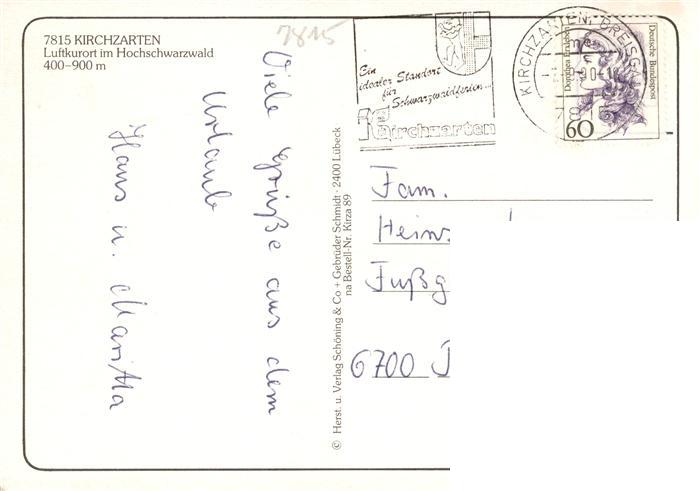 7815
7815 KIRCHZARTEN
Luftkurort im Hochschwarzwald
400–900 m
Viele Grüße aus dem
Urlaub
Hans u. Maritta
© Herst. u. Verlag Schöning & Co + Gebrüder Schmidt · 2400 Lübeck
na Bestell-Nr. Kirza 89
Ein
idealer Standort
für
Schwarzwaldferien...
Kirchzarten
KIRCHZARTEN, BREISG
Dorothea Erxleben
Deutsche Bundespost
60
Fam.
Hein.
Fußg
6700